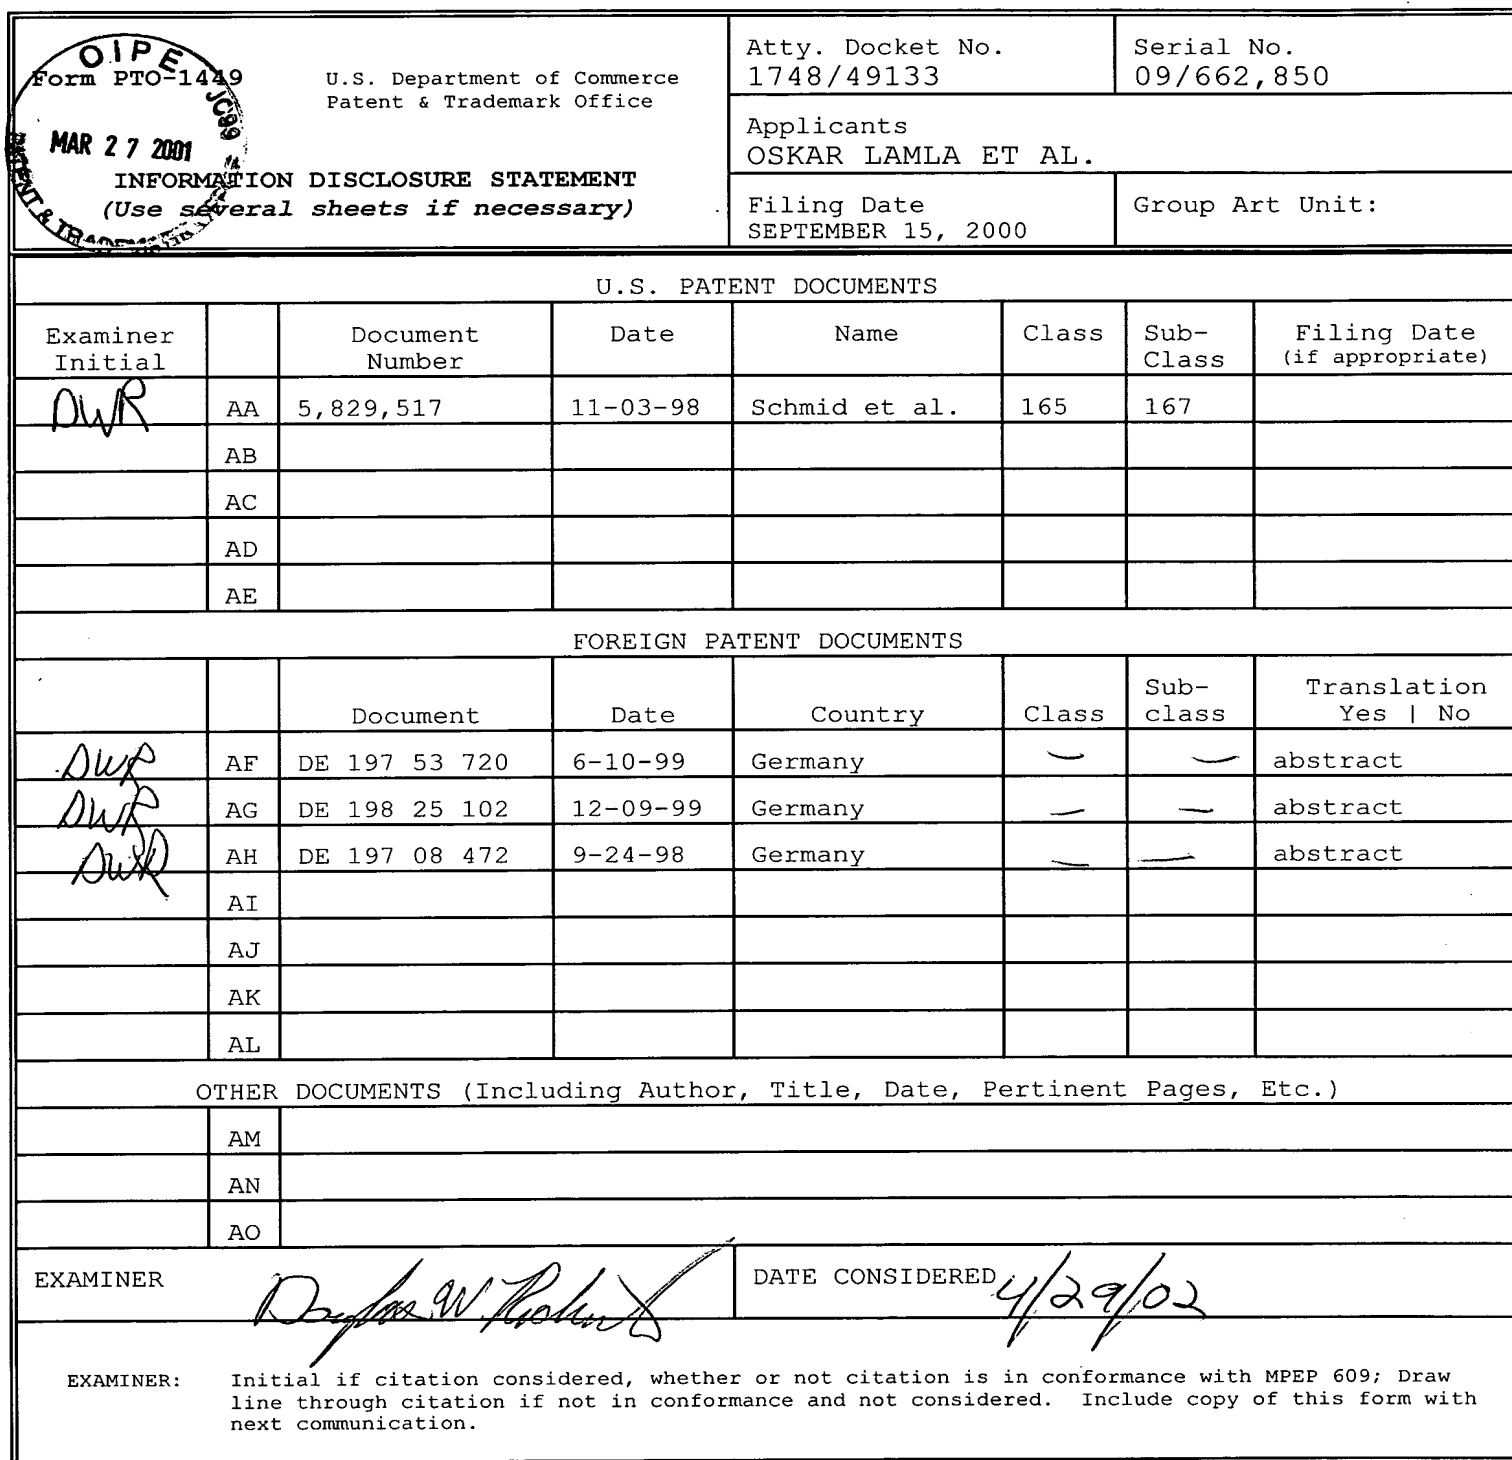 OIPE JC99
Form PTO-1449
U.S. Department of Commerce
Patent & Trademark Office
MAR 27 2001
PATENT & TRADEMARK
INFORMATION DISCLOSURE STATEMENT
(Use several sheets if necessary)
Atty. Docket No.
1748/49133
Serial No.
09/662,850
Applicants
OSKAR LAMLA ET AL.
Filing Date
SEPTEMBER 15, 2000
Group Art Unit:
U.S. PATENT DOCUMENTS
Examiner Initial Document Number Date Name Class Sub-Class Filing Date (if appropriate)
DWR AA 5,829,517 11-03-98 Schmid et al. 165 167
AB
AC
AD
AE
FOREIGN PATENT DOCUMENTS
Document Date Country Class Sub-class Translation Yes | No
DWR AF DE 197 53 720 6-10-99 Germany — — abstract
DWR AG DE 198 25 102 12-09-99 Germany — — abstract
DWR AH DE 197 08 472 9-24-98 Germany — — abstract
AI
AJ
AK
AL
OTHER DOCUMENTS (Including Author, Title, Date, Pertinent Pages, Etc.)
AM
AN
AO
EXAMINER Douglas W.
DATE CONSIDERED 4/29/02
EXAMINER: Initial if citation considered, whether or not citation is in conformance with MPEP 609; Draw
line through citation if not in conformance and not considered. Include copy of this form with
next communication.